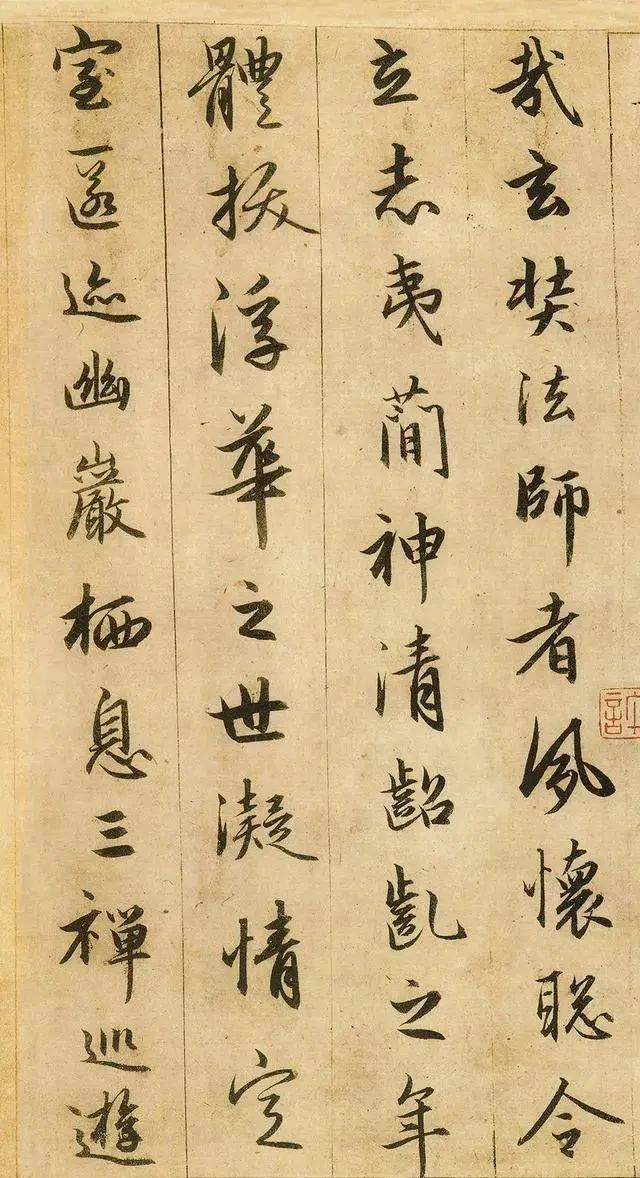 哉玄奘法師者夙懷聰令
立志夷簡神清齠齔之年
體拔浮華之世凝情定
室匿迹幽巖栖息三禪巡遊